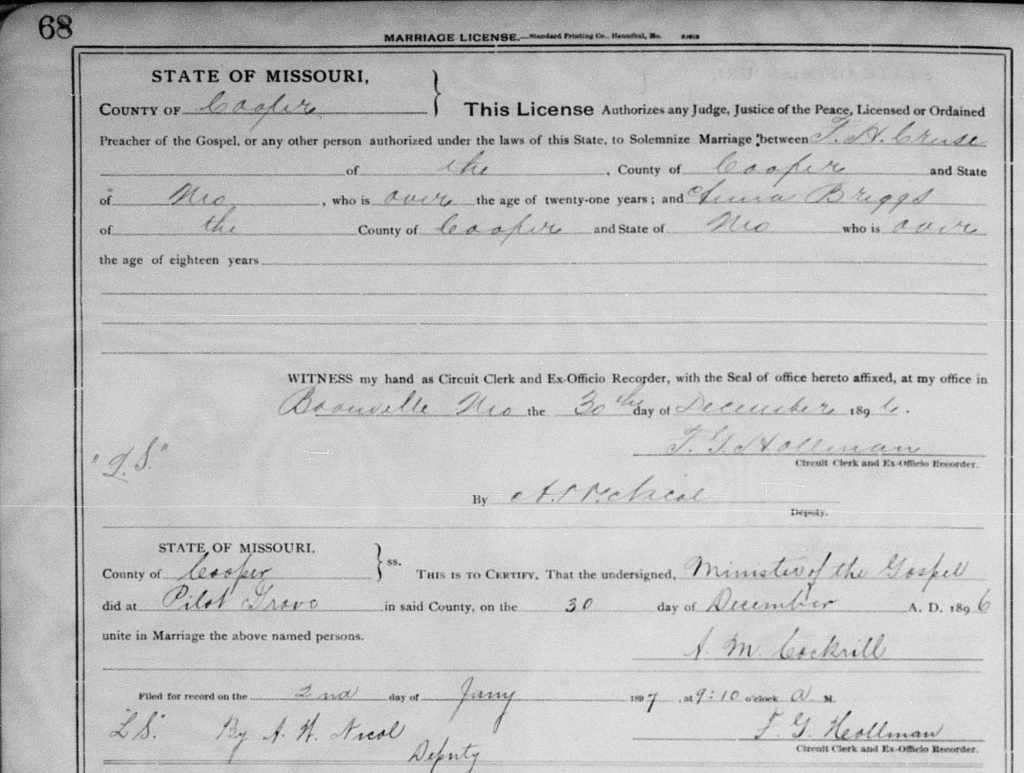 68
MARRIAGE LICENSE.—Standard Printing Co., Hannibal, Mo.
STATE OF MISSOURI,
COUNTY OF Cooper } This License Authorizes any Judge, Justice of the Peace, Licensed or Ordained
Preacher of the Gospel, or any other person authorized under the laws of this State, to Solemnize Marriage between T. H. Cruse
of the , County of Cooper and State
of Mo , who is over the age of twenty-one years; and Anna Briggs
of the County of Cooper and State of Mo who is over
the age of eighteen years
WITNESS my hand as Circuit Clerk and Ex-Officio Recorder, with the Seal of office hereto affixed, at my office in
Boonville Mo the 30th day of December 1896.
T. G. Hollman
Circuit Clerk and Ex-Officio Recorder.
"L S."
By A. W. Nicol
Deputy.
STATE OF MISSOURI,
County of Cooper } ss. THIS IS TO CERTIFY, That the undersigned, Minister of the Gospel
did at Pilot Grove in said County, on the 30 day of December A. D. 1896
unite in Marriage the above named persons.
A. M. Cockrill
Filed for record on the 2nd day of Jany 1897, at 9:10 o'clock A M.
"L S." By A. W. Nicol T. G. Hollman
Deputy Circuit Clerk and Ex-Officio Recorder.